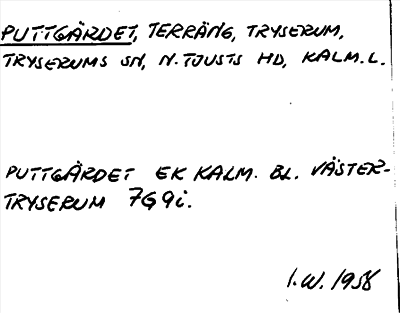 PUTTGÄRDET, TERRÄNG, TRYSERUM,
TRYSERUMS SN, N. TJUSTS HD, KALM. L.
PUTTGÄRDET EK KALM. BL. VÄSTER-
TRYSERUM 7G9i.
I.W. 1958